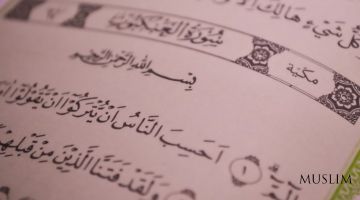 شَيْءٍ هَالِكٌ اِلَّا
سُوْرَةُ الْعَنْكَبُوْتِ مَكِّيَّةٌ
بِسْمِ اللّٰهِ الرَّحْمٰنِ الرَّحِيْمِ
١ اَحَسِبَ النَّاسُ اَنْ يُّتْرَكُوْٓا اَنْ يَّقُوْلُوْٓا
وَلَقَدْ فَتَنَّا الَّذِيْنَ مِنْ قَبْلِهِمْ
MUSLIM